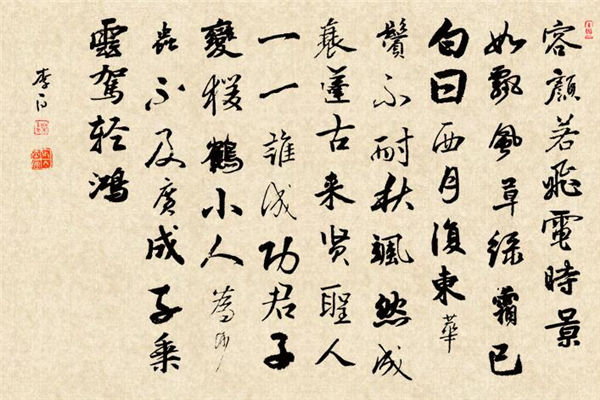 容顏若飛電時景
如飄風草綠霜已
白日西月復東華
鬢不耐秋颯然成
衰蓬古来贤聖人
一一誰成功君子
變猨鶴小人為沙
虫不及廣成子乘
雲駕轻鴻
李白